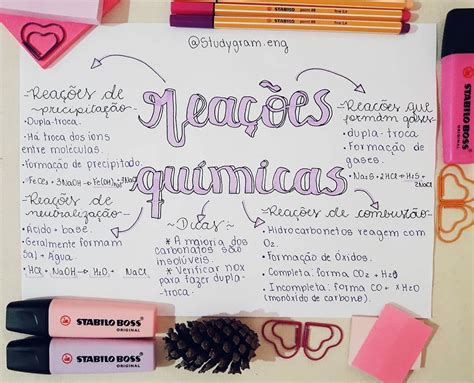 @Studygram.eng
Reações químicas
Reações de precipitação
• Dupla-troca.
• Há troca dos íons
entre moléculas.
• Formação de precipitado.
• FeCl3 + 3NaOH → Fe(OH)3 + 3NaCl
Reações que
formam gases
• dupla-troca
• Formação de
gases.
• Na2S + 2HCl → H2S +
2NaCl
Reações de
neutralização
• Ácido + base.
• Geralmente formam
Sal + Água.
• HCl + NaOH → H2O + NaCl
Dicas
* A maioria dos
carbonatos são
insolúveis.
* Verificar nox
para fazer dupla-
troca.
Reações de combustão
• Hidrocarbonetos reagem com
O2.
• Formação de Óxidos.
• Completa: forma CO2 + H2O
• Incompleta: forma CO + H2O
(monóxido de carbono).
STABILO
STABILO
STABILO BOSS
ORIGINAL
STABILO BOSS
ORIGINAL
STABILO BOSS
ORIGINAL